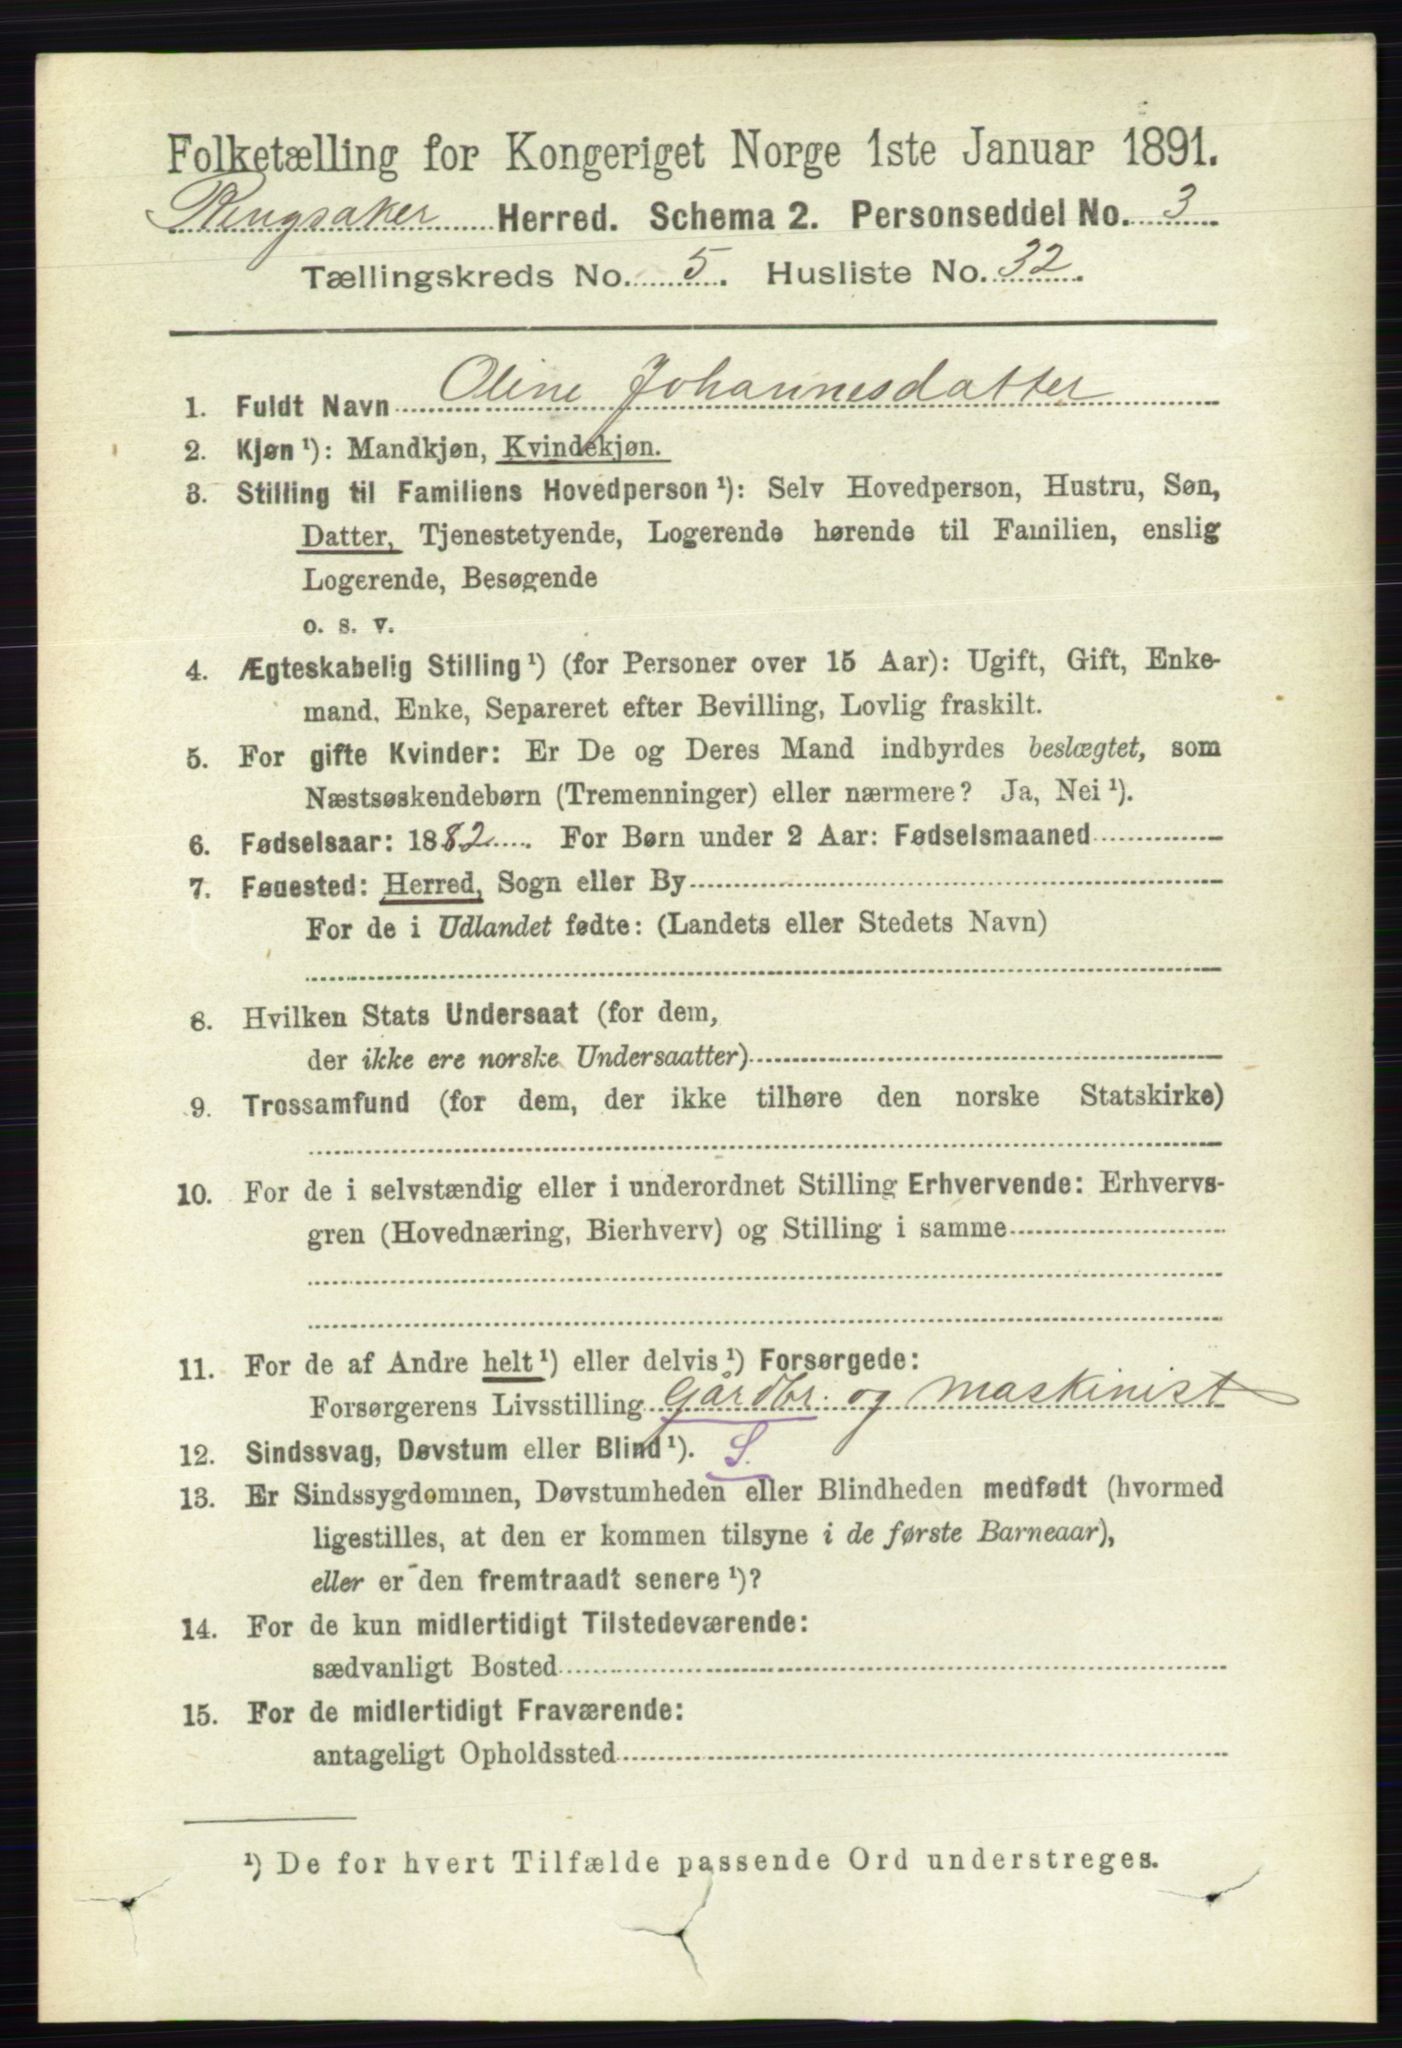 Folketælling for Kongeriget Norge 1ste Januar 1891.
Ringsaker Herred. Schema 2. Personseddel No. 3
Tællingskreds No. 5. Husliste No. 32.
1. Fuldt Navn Oline Johannesdatter
2. Kjøn ¹): Mandkjøn, Kvindekjøn.
3. Stilling til Familiens Hovedperson ¹): Selv Hovedperson, Hustru, Søn,
Datter, Tjenestetyende, Logerende hørende til Familien, enslig
Logerende, Besøgende
o. s. v.
4. Ægteskabelig Stilling ¹) (for Personer over 15 Aar): Ugift, Gift, Enke-
mand, Enke, Separeret efter Bevilling, Lovlig fraskilt.
5. For gifte Kvinder: Er De og Deres Mand indbyrdes beslægtet, som
Næstsøskendebørn (Tremenninger) eller nærmere? Ja, Nei ¹).
6. Fødselsaar: 1882. For Børn under 2 Aar: Fødselsmaaned
7. Føuested: Herred, Sogn eller By
For de i Udlandet fødte: (Landets eller Stedets Navn)
8. Hvilken Stats Undersaat (for dem,
der ikke ere norske Undersaatter)
9. Trossamfund (for dem, der ikke tilhøre den norske Statskirke)
10. For de i selvstændig eller i underordnet Stilling Erhvervende: Erhvervs-
gren (Hovednæring, Bierhverv) og Stilling i samme
11. For de af Andre helt ¹) eller delvis ¹) Forsørgede:
Forsørgerens Livsstilling Gårdbr. og maskinist
12. Sindssvag, Døvstum eller Blind ¹). S.
13. Er Sindssygdommen, Døvstumheden eller Blindheden medfødt (hvormed
ligestilles, at den er kommen tilsyne i de første Barneaar),
eller er den fremtraadt senere ¹)?
14. For de kun midlertidigt Tilstedeværende:
sædvanligt Bosted
15. For de midlertidigt Fraværende:
antageligt Opholdssted
¹) De for hvert Tilfælde passende Ord understreges.